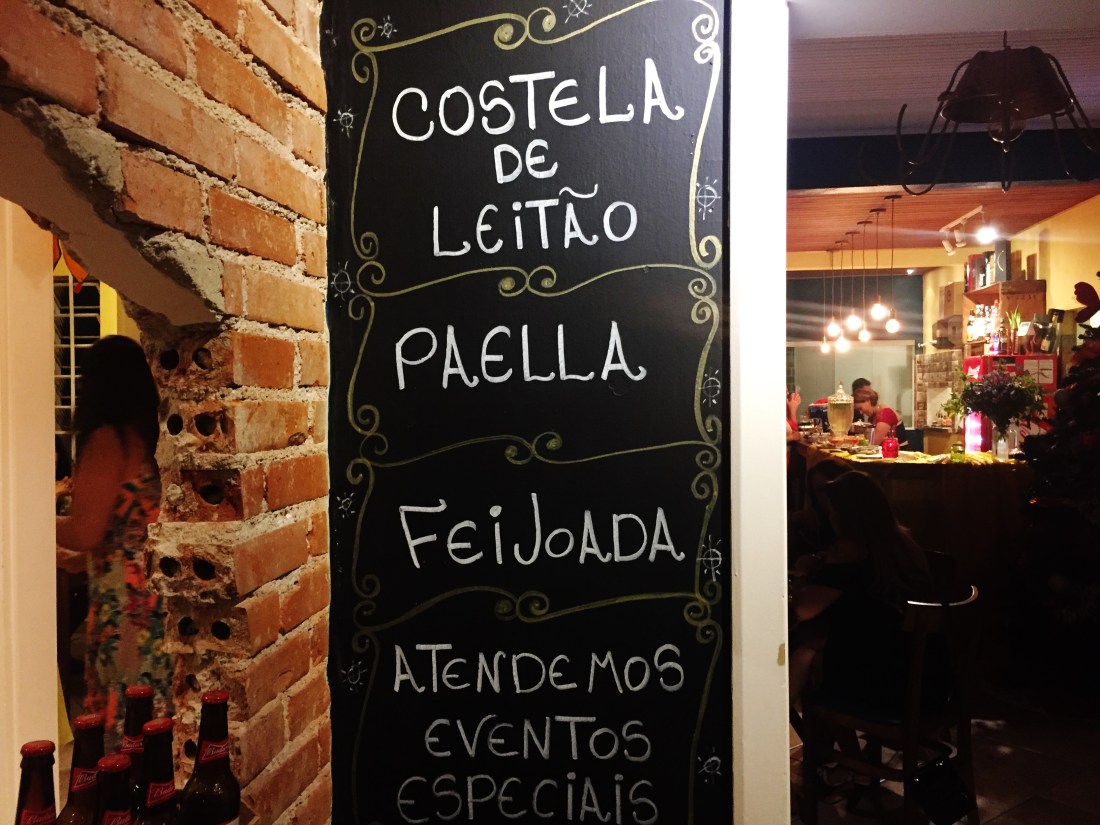 COSTELA
DE
LEITÃO
PAELLA
FEIJOADA
ATENDEMOS
EVENTOS
ESPECIAIS